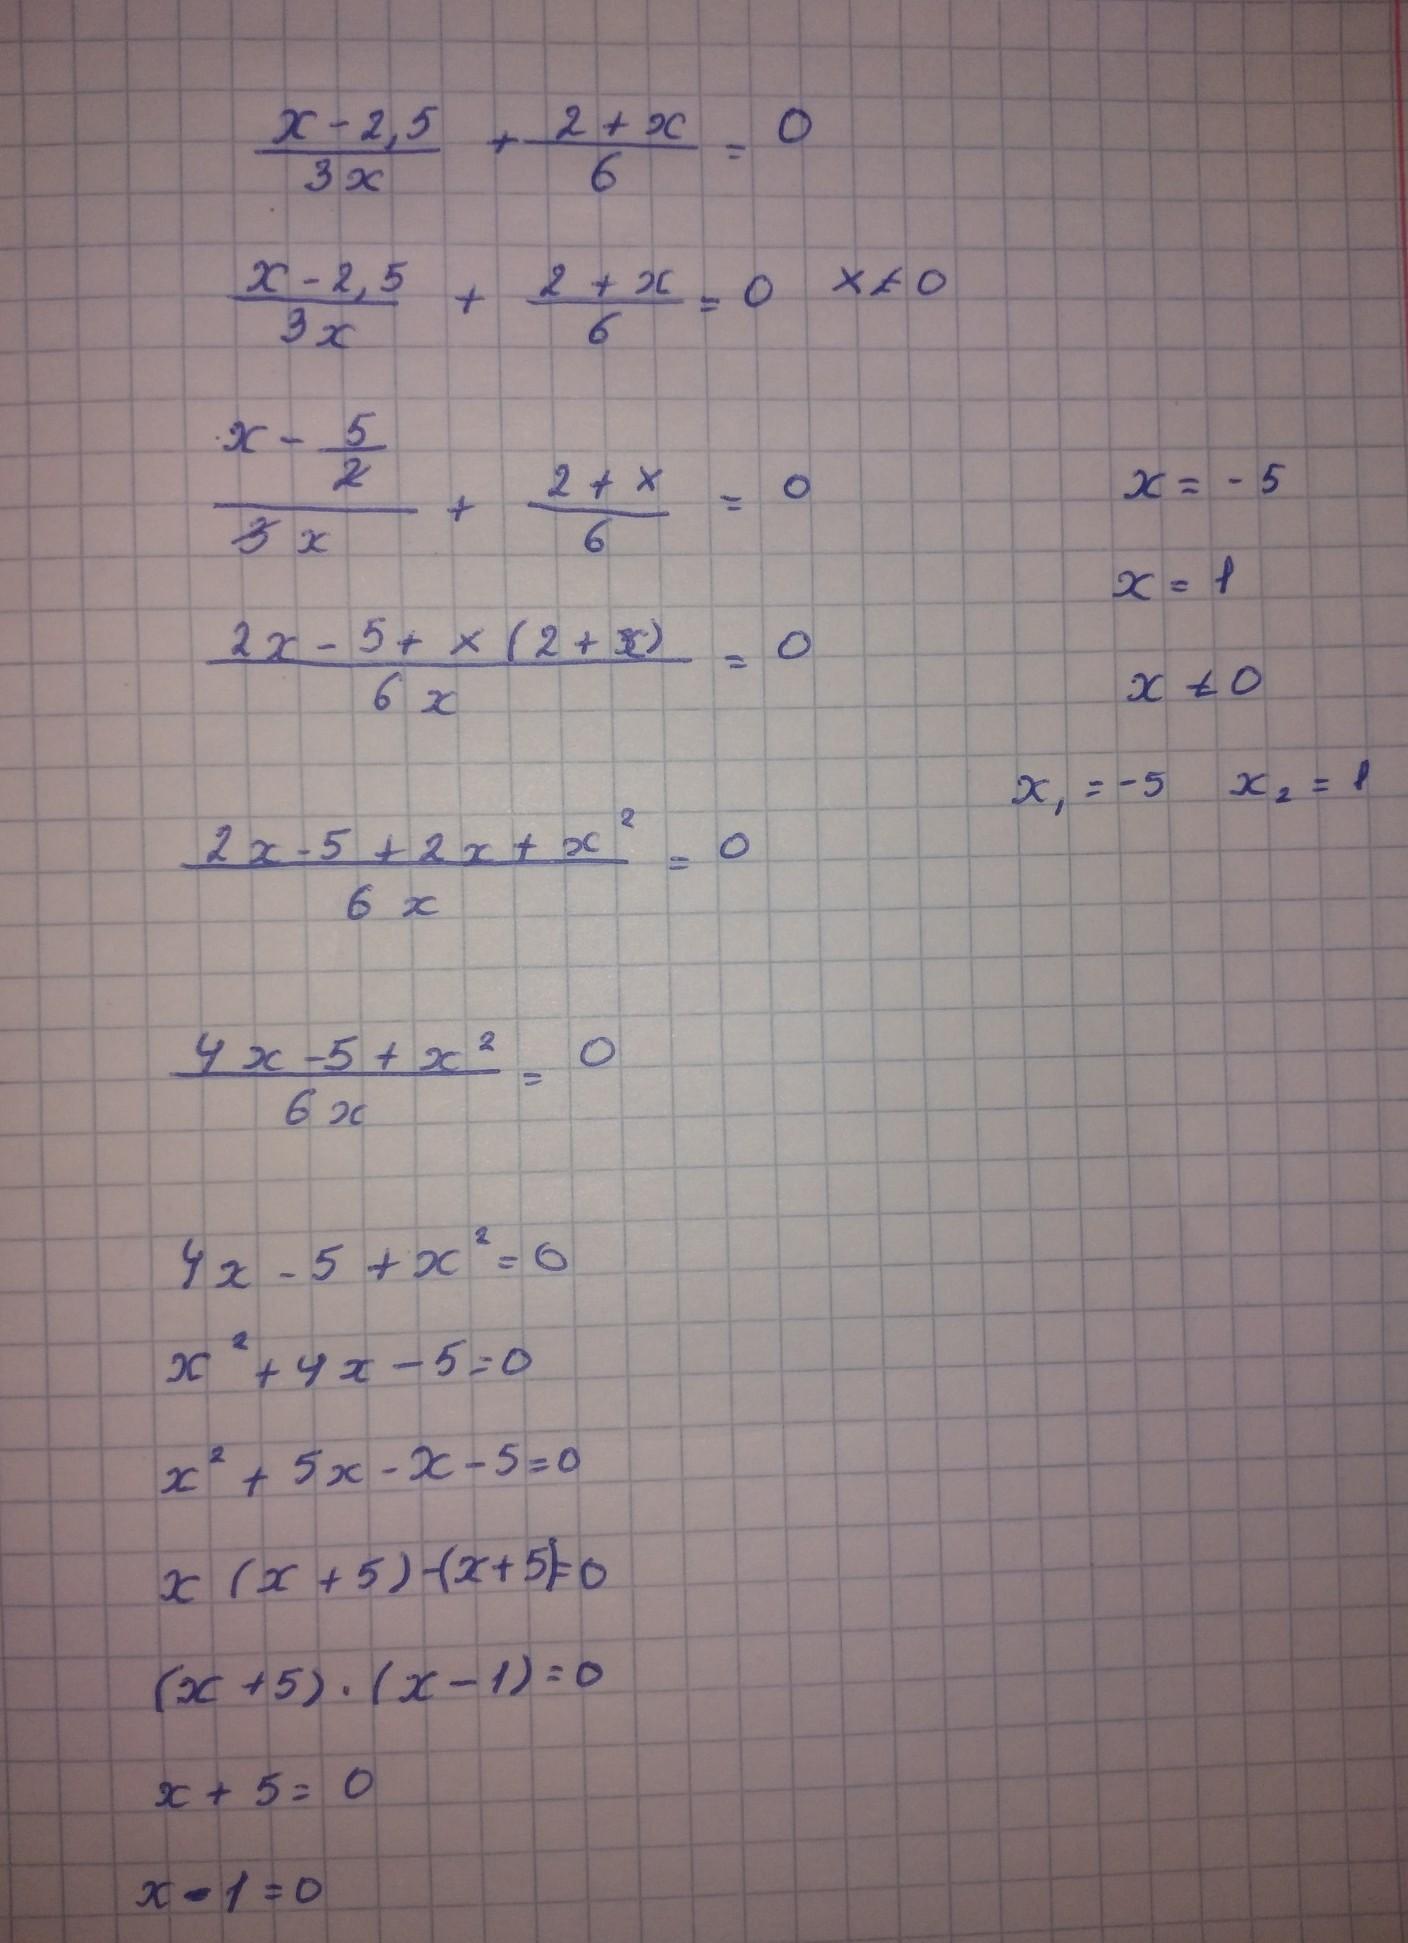 (x - 2,5)/(3x) + (2 + x)/6 = 0
(x - 2,5)/(3x) + (2 + x)/6 = 0 x ≠ 0
(x - 5/2)/(3x) + (2 + x)/6 = 0
(2x - 5 + x(2 + x))/(6x) = 0
(2x - 5 + 2x + x²)/(6x) = 0
(4x - 5 + x²)/(6x) = 0
4x - 5 + x² = 0
x² + 4x - 5 = 0
x² + 5x - x - 5 = 0
x (x + 5) - (x + 5) = 0
(x + 5) · (x - 1) = 0
x + 5 = 0
x - 1 = 0
x = - 5
x = 1
x ≠ 0
x₁ = -5 x₂ = 1